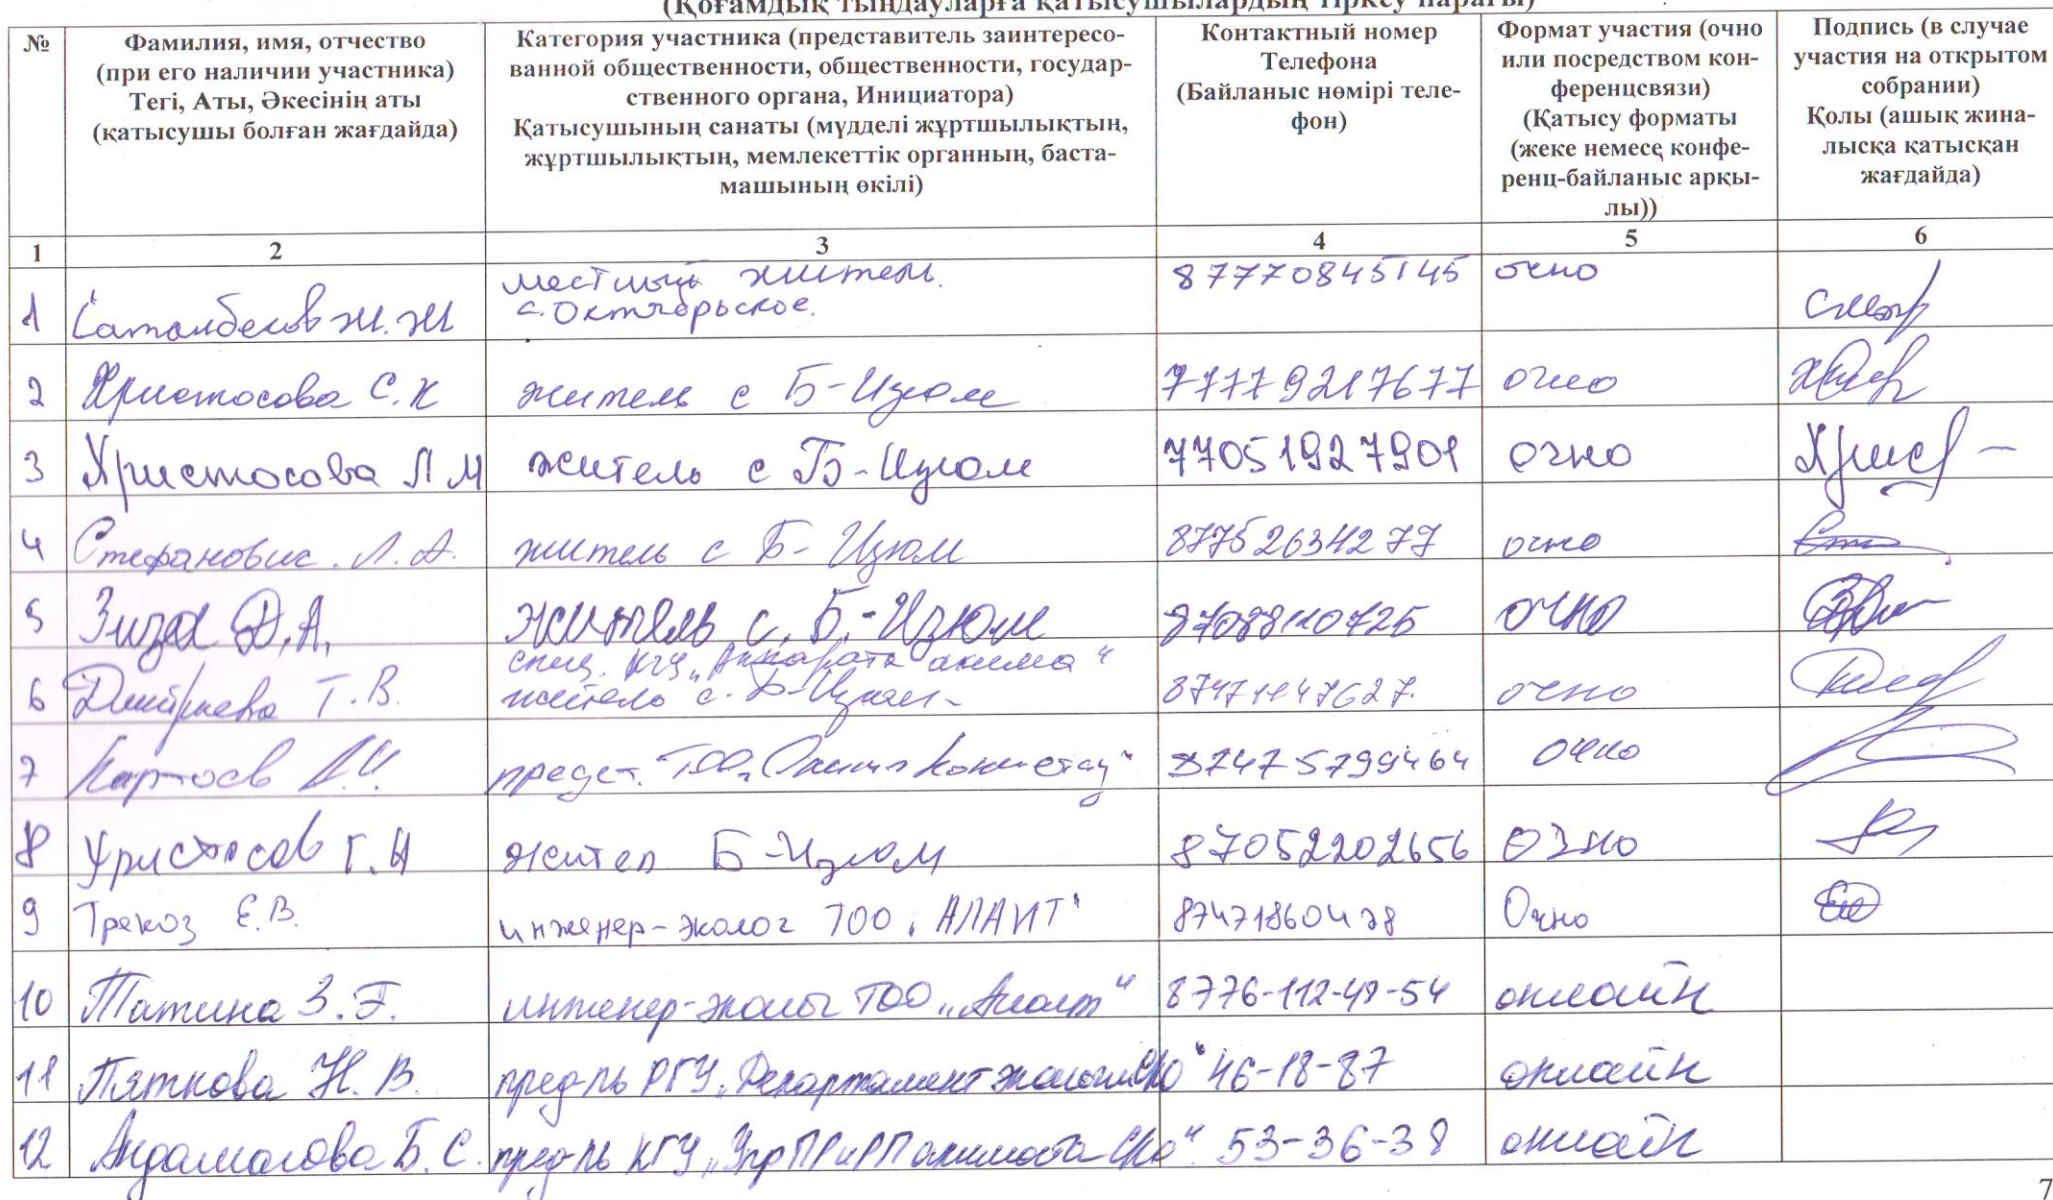 (Қоғамдық тыңдауларға қатысушылардың тіркеу парағы)
№
Фамилия, имя, отчество
(при его наличии участника)
Тегі, Аты, Әкесінің аты
(қатысушы болған жағдайда)
Категория участника (представитель заинтересо-
ванной общественности, общественности, государ-
ственного органа, Инициатора)
Қатысушының санаты (мүдделі жұртшылықтың,
жұртшылықтың, мемлекеттік органның, баста-
машының өкілі)
Контактный номер
Телефона
(Байланыс нөмірі теле-
фон)
Формат участия (очно
или посредством кон-
ференцсвязи)
(Қатысу форматы
(жеке немесе конфе-
ренц-байланыс арқы-
лы))
Подпись (в случае
участия на открытом
собрании)
Қолы (ашық жина-
лысқа қатысқан
жағдайда)
1 2 3 4 5 6
1 Ж.Ж местный житель. 87770845145 очно
с. Октябрьское.
2 Христосова С.К житель с Б-Изюм 77779217677 очно
3 Христосова Л М житель с Б-Изюм 77051927901 очно
4 Стефанович. Л.А. житель с Б-Изюм 87752634277 очно
5 Зиза Д.А. житель с. Б.-Изюм очно
спец. КГУ „Аппарата акима"
6 Дмитриева Т.В. житель с. Б-Изюм 87471147627. очно
7 предст. ТОО 87475799464 очно
8 Христосов Г.Н жител Б-Изюм 87052202656 очно
9 Трекоз Е.В. инженер-эколог ТОО „АЛАИТ" 87471860478 Очно
10 Татина З.Г. инженер-эколог ТОО „Алаит" 8776-112-49-54 онлайн
11 Пяткова Н.В. пред-ль РГУ „Департамент экологии СКО" 46-18-87 онлайн
12 Андамасова Б.С. пред-ль КГУ „Упр ПРиРП акимата СКО" 53-36-38 онлайн
7